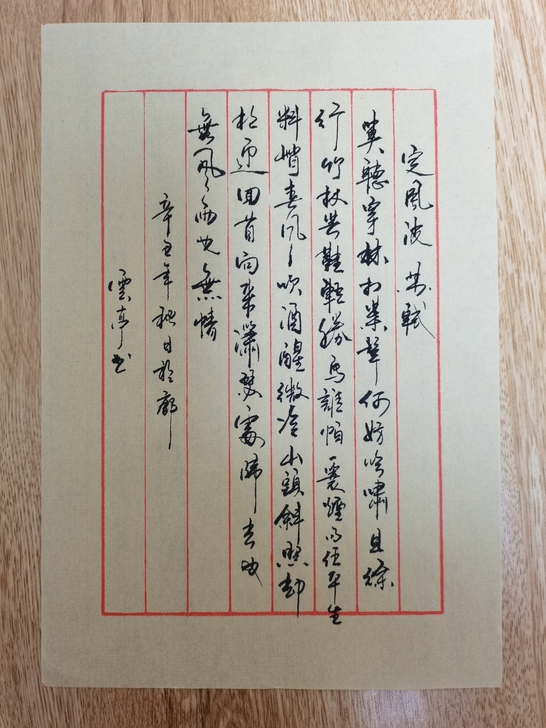 定風波 蘇軾
莫聽穿林打葉聲何妨吟嘯且徐
行竹杖芒鞋輕勝馬誰怕一蓑煙雨任平生
料峭春风吹酒醒微冷山頭斜照却
相迎回首向來瀟瑟處歸去也
無风雨也無情
辛丑年秋日於廊
雲亭书